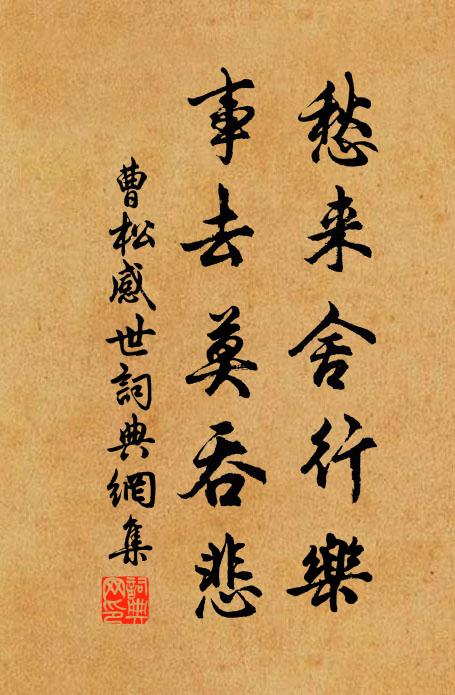 愁来舍行樂
事去莫吞悲
曹松感世詞典網集
詞典网印